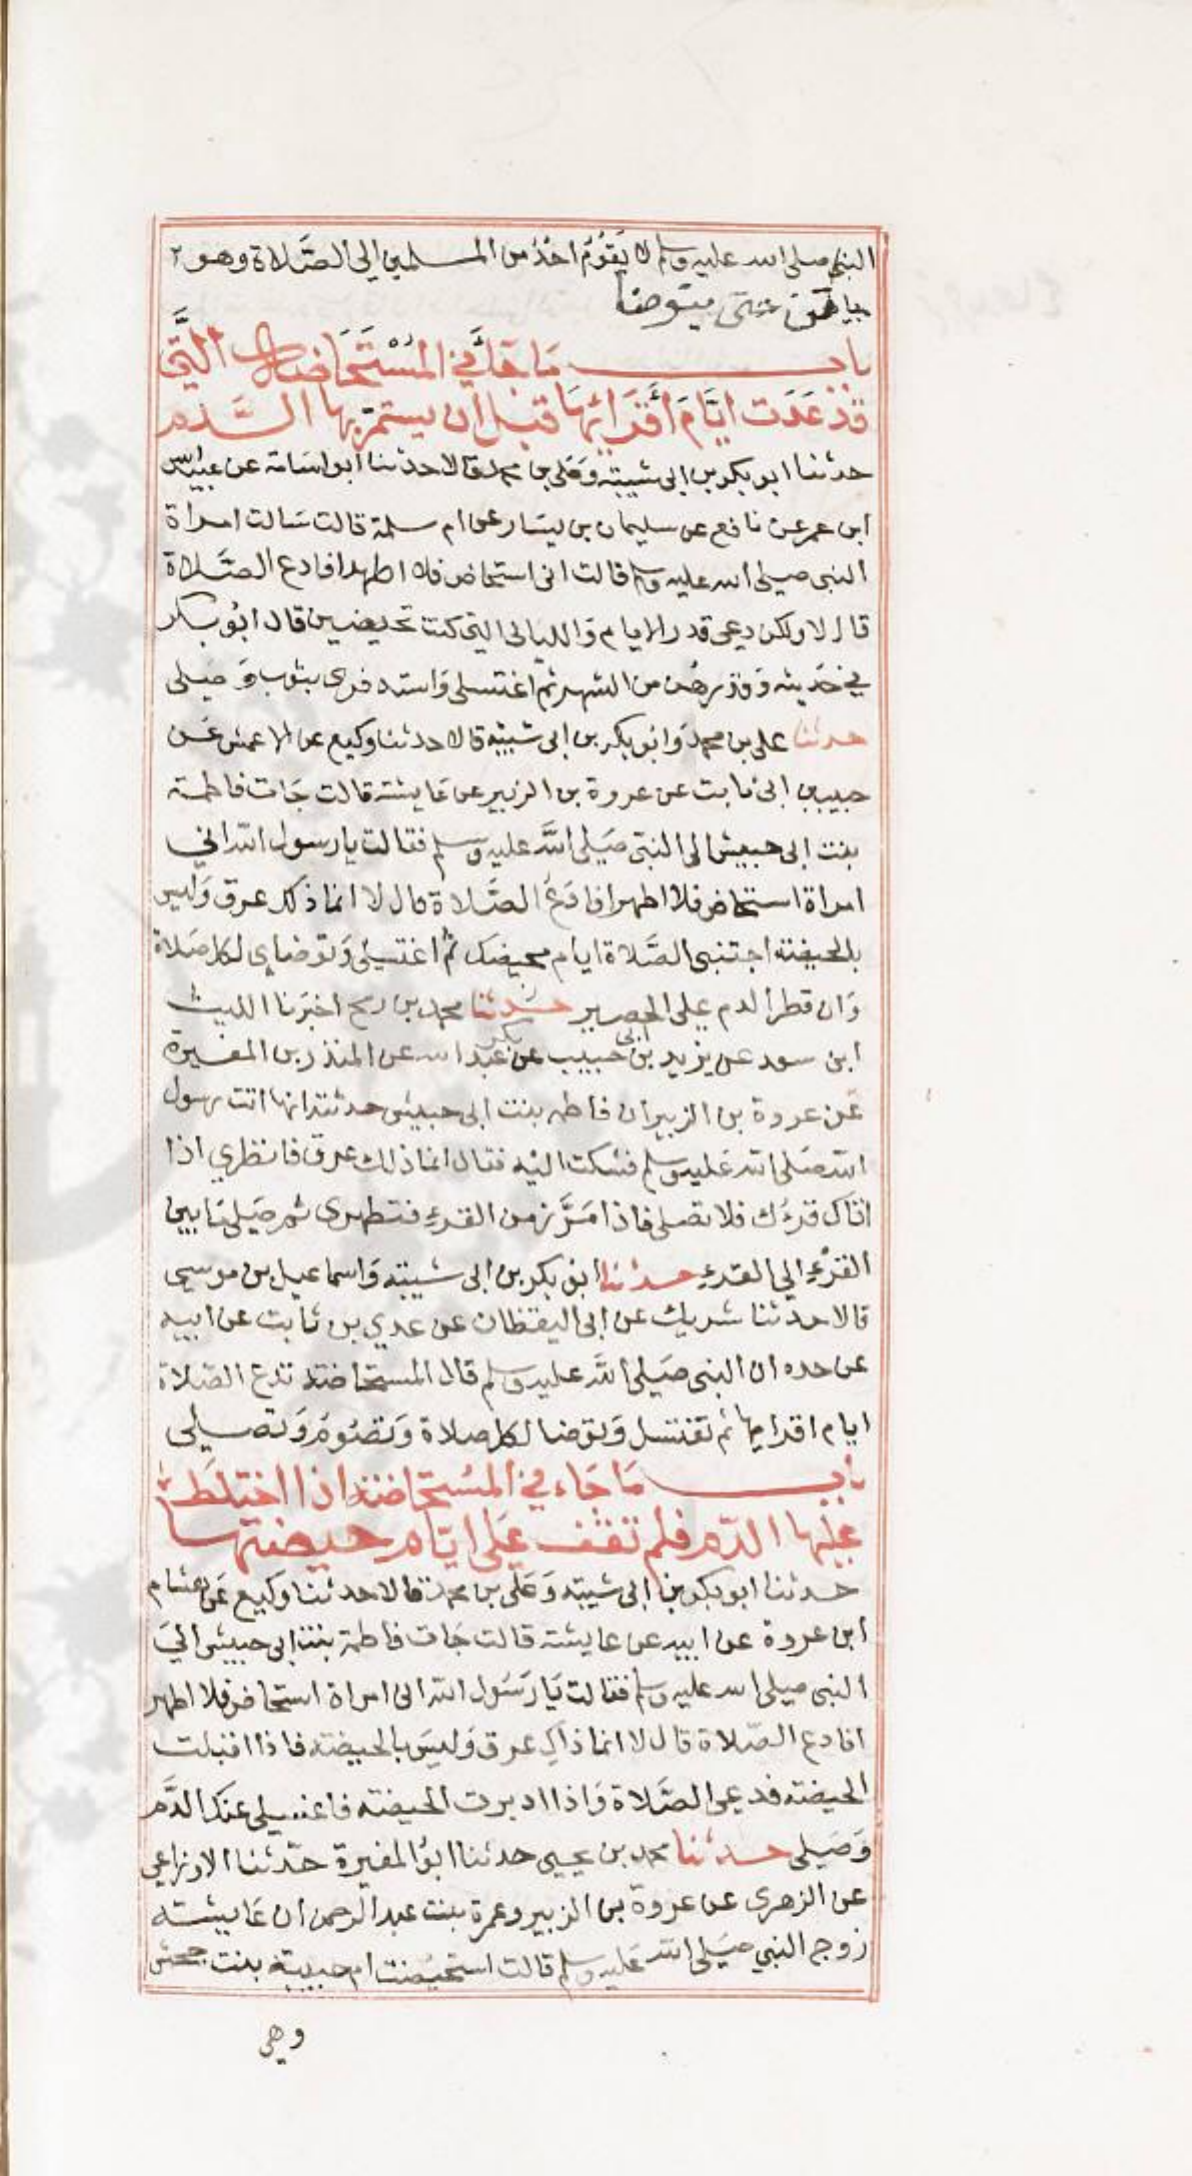 النبي صلى الله عليه وسلم لا يقوم احد من المسلمين الى الصلاة وهو
حتى يتوضا
باب ما جا في المستحاضة التي
قد عدت ايام أقرائها قبل أن يستمر بها الدم
حدثنا ابو بكر بن ابي شيبة وعلي بن محمد قالا حدثنا ابو اسامة عن عبيد الله
ابن عمر عن نافع عن سليمان بن يسار عن ام سلمة قالت سالت امراة
النبي صلى الله عليه وسلم قالت اني استحاض فلا اطهر افادع الصلاة
قال لا ولكن دعي قدر الايام والليالي التي كنت تحيضين قال ابو بكر
في حديثه وقدرهن من الشهر ثم اغتسلي واستدفري بثوب وصلي
حدثنا علي بن محمد وابو بكر بن ابي شيبة قالا حدثنا وكيع عن الاعمش عن
حبيب بن ابي ثابت عن عروة بن الزبير عن عايشة قالت جات فاطمة
بنت ابي حبيش الى النبي صلى الله عليه وسلم فقالت يا رسول الله اني
امراة استحاض فلا اطهر افادع الصلاة قال لا انما ذلك عرق وليس
بالحيضة اجتنبي الصلاة ايام محيضك ثم اغتسلي وتوضاي لكل صلاة
وان قطر الدم على الحصير حدثنا محمد بن رمح اخبرنا الليث
ابن سعد عن يزيد بن ابي حبيب عن بكر عبد الله عن المنذر بن المغيرة
عن عروة بن الزبير ان فاطمه بنت ابي حبيش حدثته انها اتت رسول
الله صلى الله عليه وسلم فشكت اليه فقال انما ذلك عرق فانظري اذا
اتاك قرؤك فلا تصلي فاذا مر زمن القرء فتطهري ثم صلي ما بين
القرء الى القرء حدثنا ابو بكر بن ابي شيبة واسماعيل بن موسى
قالا حدثنا شريك عن ابي اليقظان عن عدي بن ثابت عن ابيه
عن جده ان النبي صلى الله عليه وسلم قال المستحاضة تدع الصلاة
ايام اقرايها ثم تغتسل وتوضا لكل صلاة وتصوم وتصلي
باب ما جاء في المستحاضة اذا اختلط
عليها الدم فلم تقف على ايام حيضتها
حدثنا ابو بكر بن ابي شيبة وعلي بن محمد قالا حدثنا وكيع عن هشام
ابن عروة عن ابيه عن عايشة قالت جات فاطمة بنت ابي حبيش الى
النبي صلى الله عليه وسلم فقالت يا رسول الله اني امراة استحاض فلا اطهر
افادع الصلاة قال لا انما ذاك عرق وليس بالحيضة فاذا اقبلت
الحيضة فدعي الصلاة واذا ادبرت الحيضة فاغسلي عنك الدم
وصلي حدثنا محمد بن يحيى حدثنا ابو المغيرة حدثنا الاوزاعي
عن الزهري عن عروة بن الزبير وعمرة بنت عبد الرحمن ان عايشة
زوج النبي صلى الله عليه وسلم قالت استحيضت ام حبيبة بنت جحش
وهي